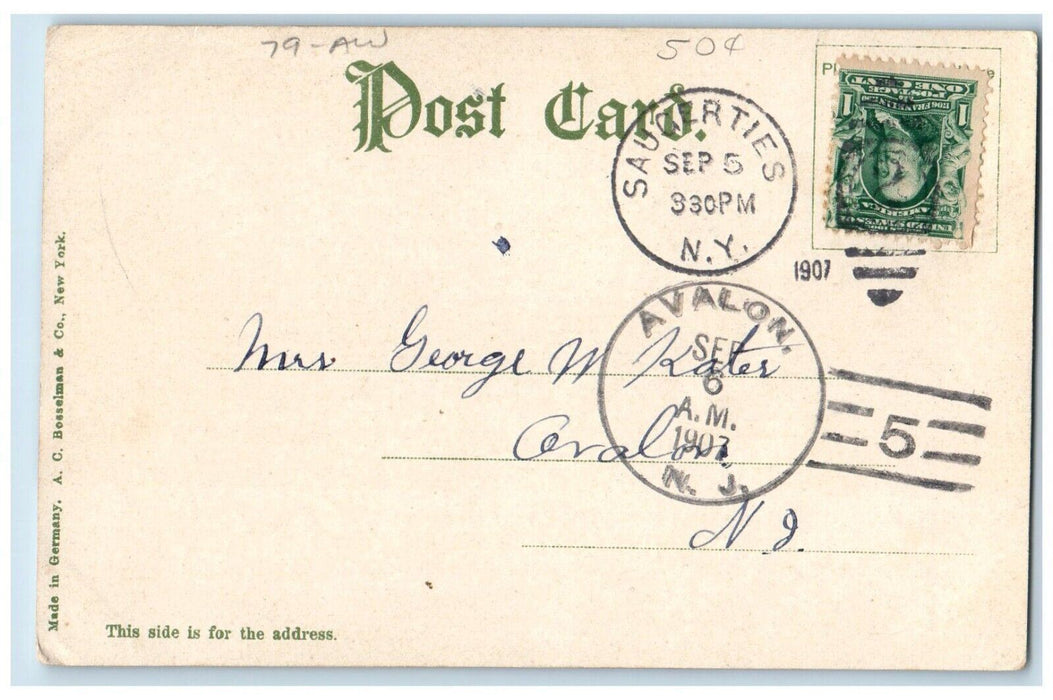 79-AW
50¢
Post Card.
SAUGERTIES
SEP 5
330PM
N.Y.
1907
ONE CENT
POSTAGE
1 1
AVALON,
SEP
6
A.M.
1907
N. J.
5
Mrs George W Kater
Avalon
N J.
Made in Germany. A. C. Bosselman & Co., New York.
This side is for the address.